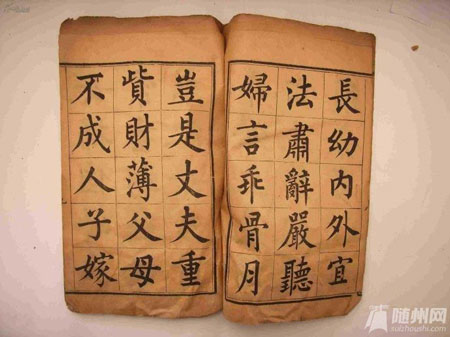 長幼内外宜
法肅辭嚴聽
婦言乖骨月
豈是丈夫重
貲財薄父母
不成人子嫁
随州网
suizhoushi.com